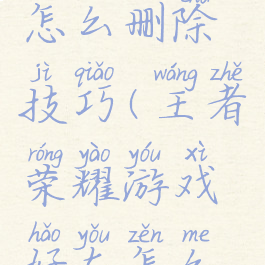 怎么删除
jì qiǎo wáng zhě
技巧(王者
róng yào yóu xì
荣耀游戏
hǎo yǒu zěn me
好友怎么